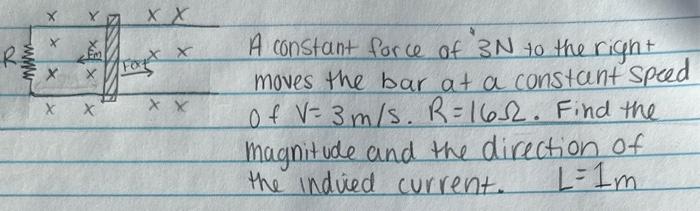 x x x x
R x x Fm x x
x x
x x x x
A constant force of 3N to the right
moves the bar at a constant speed
of V= 3m/s. R=16Ω. Find the
magnitude and the direction of
the induied current. L=1m